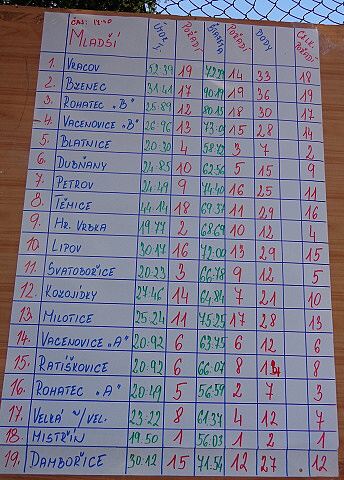 ČAS: 17:10
MLADŠÍ ÚTOK I. POŘADÍ ŠTAFETA POŘADÍ BODY CELK. POŘADÍ
1. VRACOV 52:39 19 14 33 18
2. BZENEC 31:41 17 90:19 19 36 19
3. ROHATEC "B" 25:89 12 80:15 18 30 17
4. VACENOVICE "B" 26:96 13 73:03 15 28 14
5. BLATNICE 20:30 4 58:72 3 7 2
6. DUBŇANY 24:85 10 62:56 5 15 9
7. PETROV 24:49 9 74:40 16 25 11
8. TĚMICE 44:14 18 69:37 11 29 16
9. HR. VRBKA 19:77 2 68:69 10 12 4
10. LIPOV 30:17 16 72:00 13 29 15
11. SVATOBOŘICE 20:23 3 66:78 9 12 5
12. KOZOJÍDKY 27:46 14 64:84 7 21 10
13. MILOTICE 25:24 11 75:25 17 28 13
14. VACENOVICE "A" 20:92 6 63:75 6 12 6
15. RATÍŠKOVICE 20:92 6 66:07 8 14 8
16. ROHATEC "A" 20:49 5 56:59 2 7 3
17. VELKÁ N/VEL. 23:22 8 61:37 4 12 7
18. MISTŘÍN 19:50 1 56:03 1 2 1
19. DAMBOŘICE 30:12 15 71:54 12 27 12